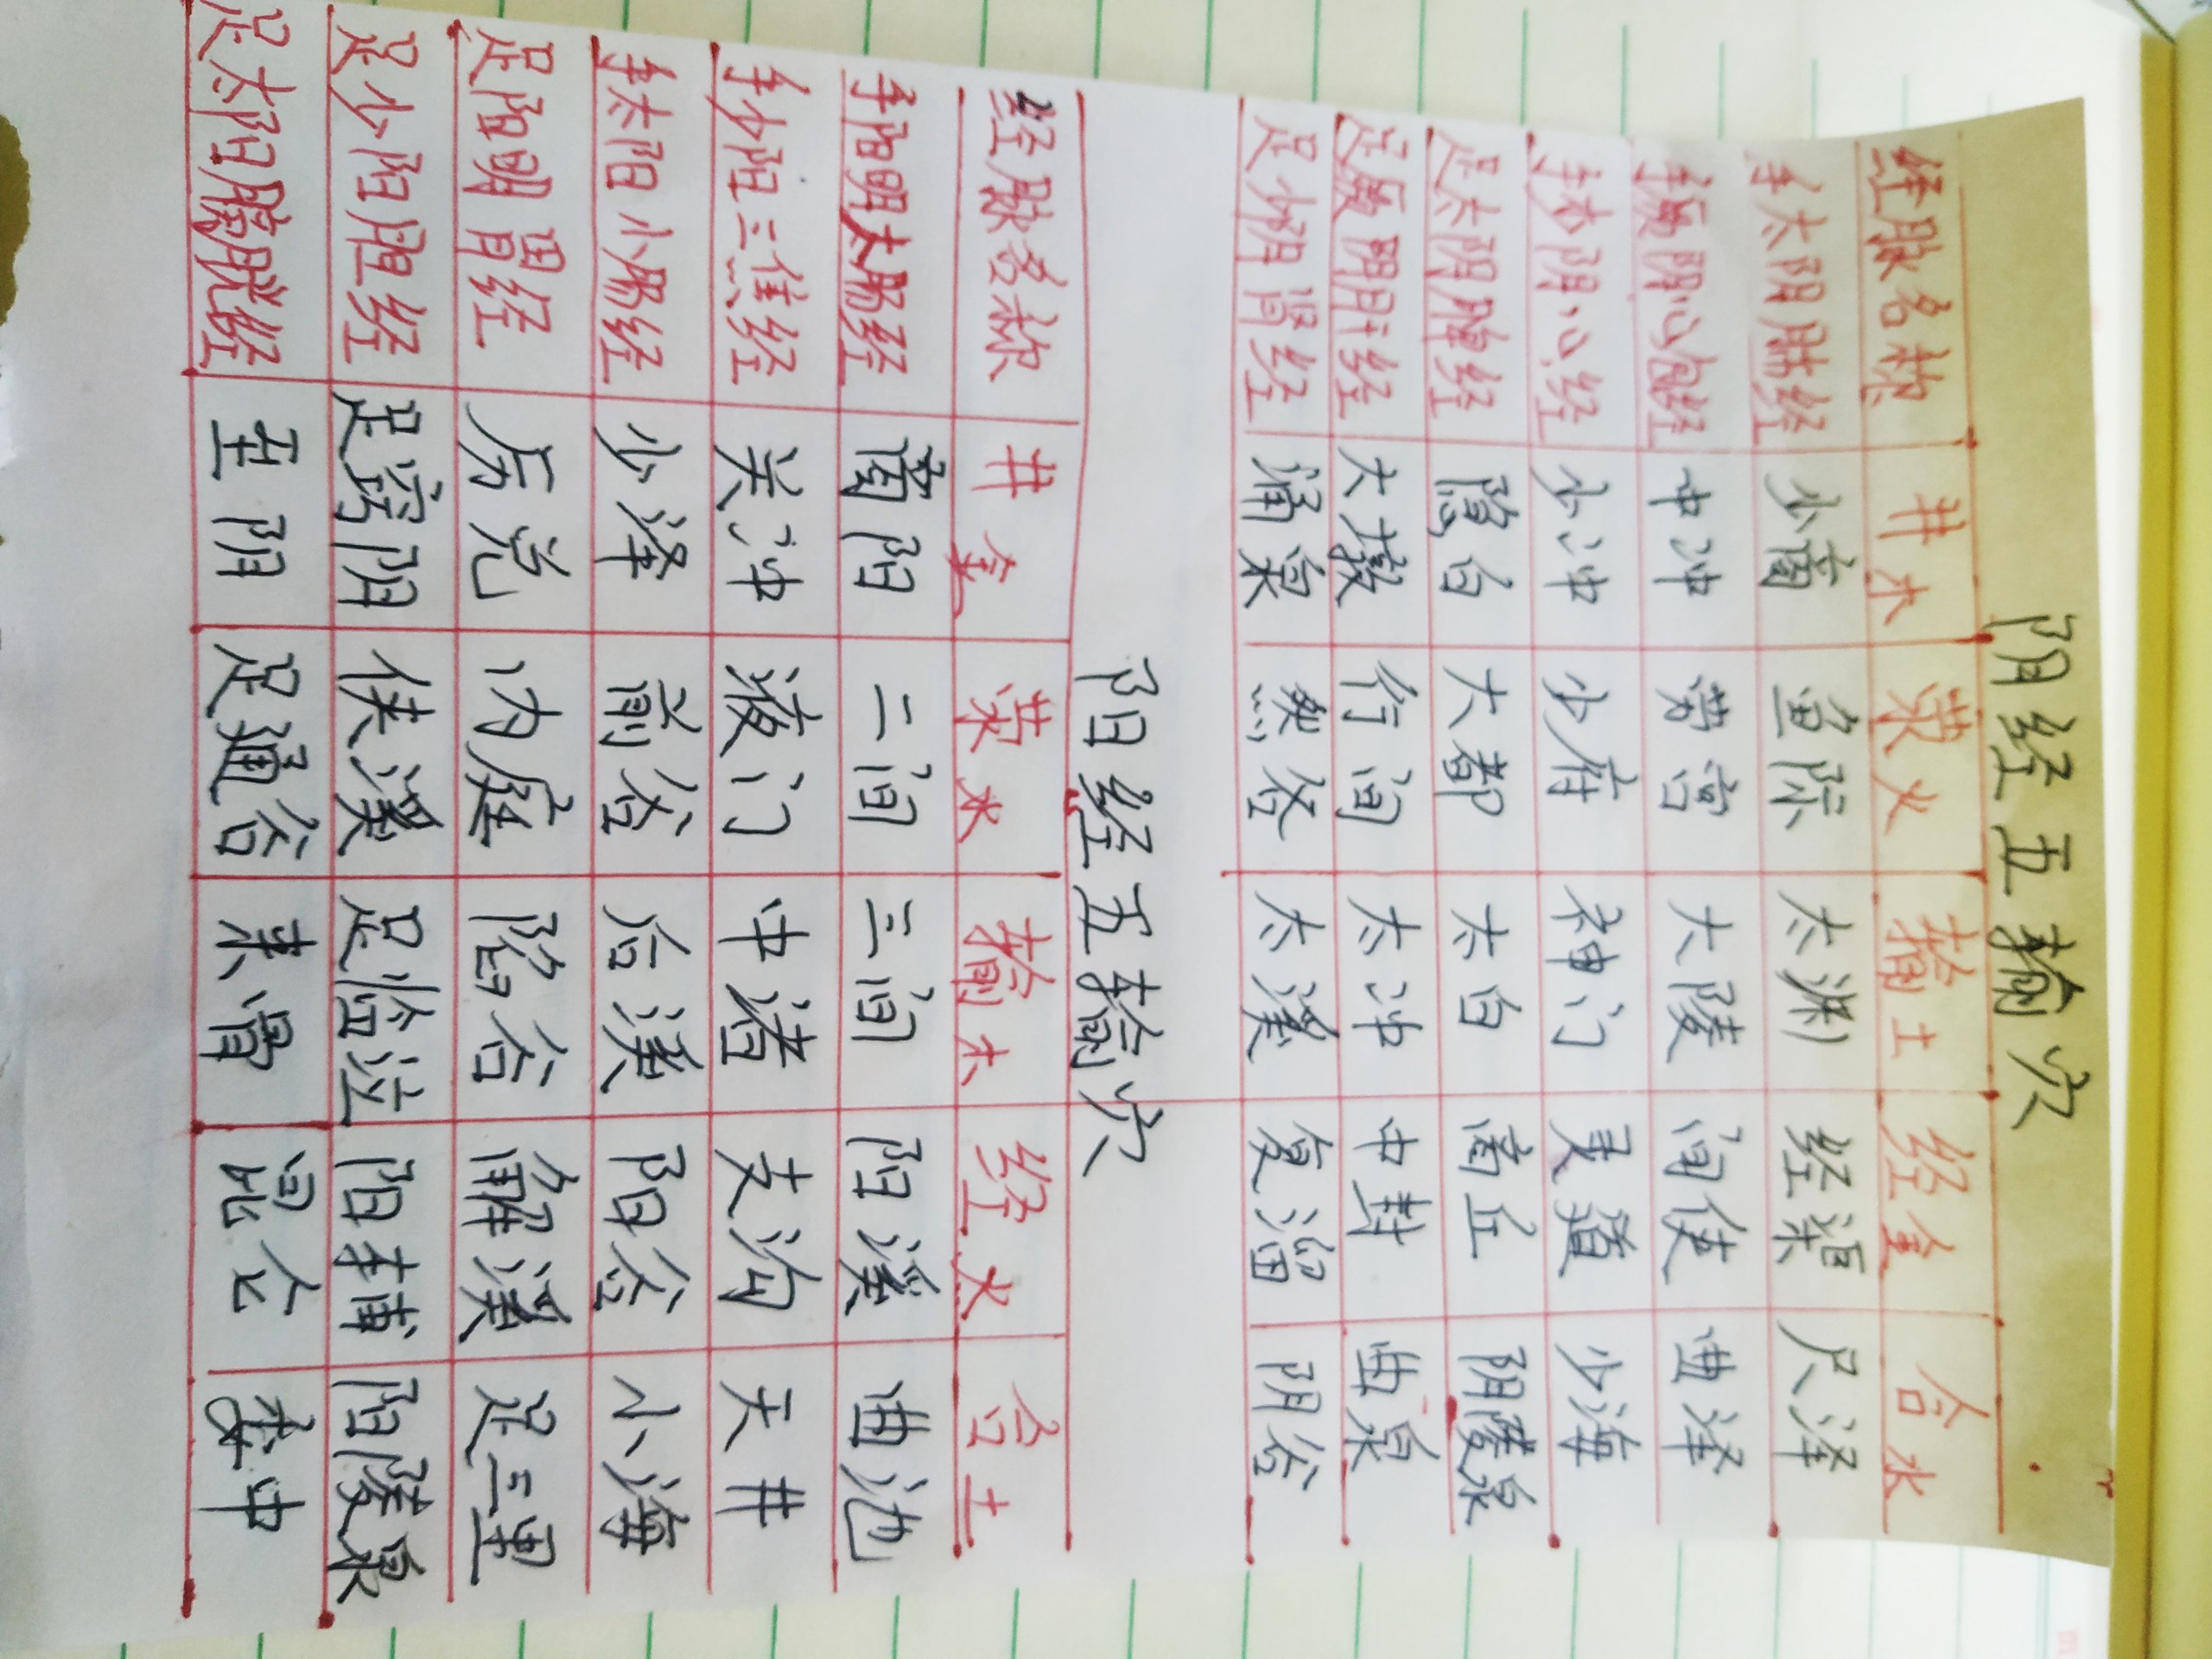 阴经五输穴
经脉名称 井木 荥火 输土 经金 合水
手太阴肺经 少商 鱼际 太渊 经渠 尺泽
手厥阴心包经 中冲 劳宫 大陵 间使 曲泽
手少阴心经 少冲 少府 神门 灵道 少海
足太阴脾经 隐白 大都 太白 商丘 阴陵泉
足厥阴肝经 大敦 行间 太冲 中封 曲泉
足少阴肾经 涌泉 然谷 太溪 复溜 阴谷
阳经五输穴
经脉名称 井金 荥水 输木 经火 合土
手阳明大肠经 商阳 二间 三间 阳溪 曲池
手少阳三焦经 关冲 液门 中渚 支沟 天井
手太阳小肠经 少泽 前谷 后溪 阳谷 小海
足阳明胃经 厉兑 内庭 陷谷 解溪 足三里
足少阳胆经 足窍阴 侠溪 足临泣 阳辅 阳陵泉
足太阳膀胱经 至阴 足通谷 束骨 昆仑 委中